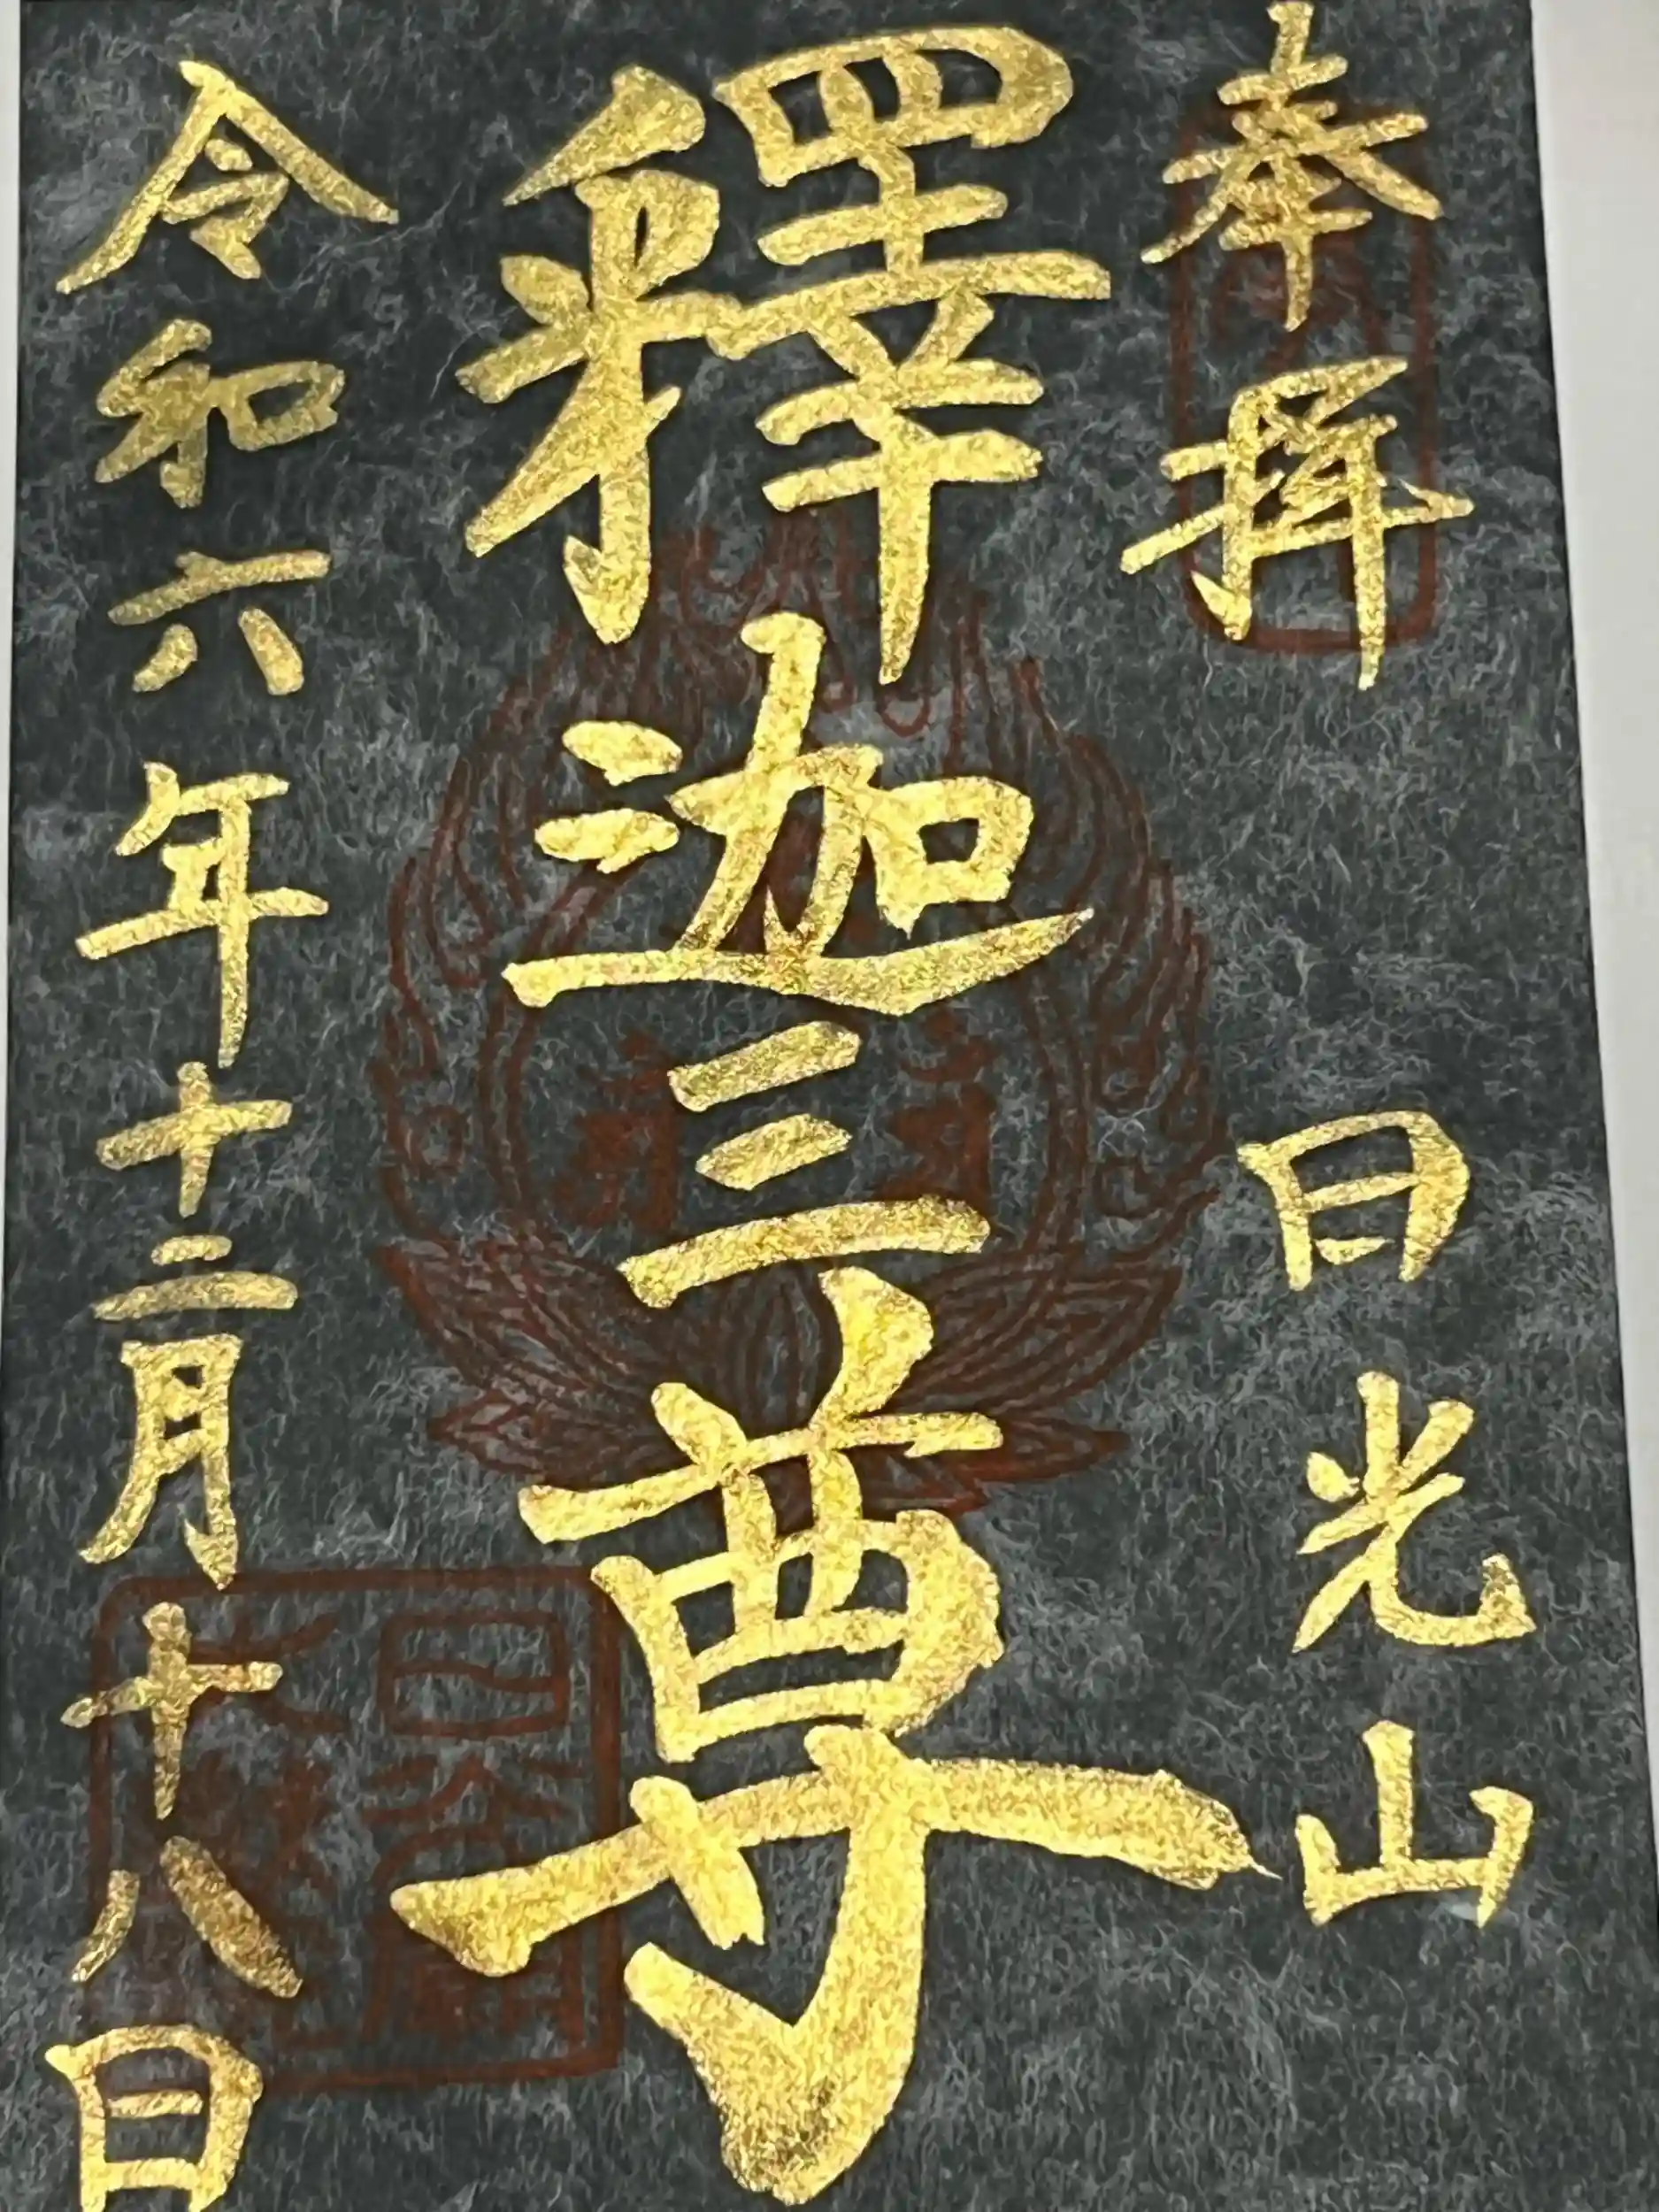 奉拝　日光山
釋迦三尊
令和六年十二月十八日